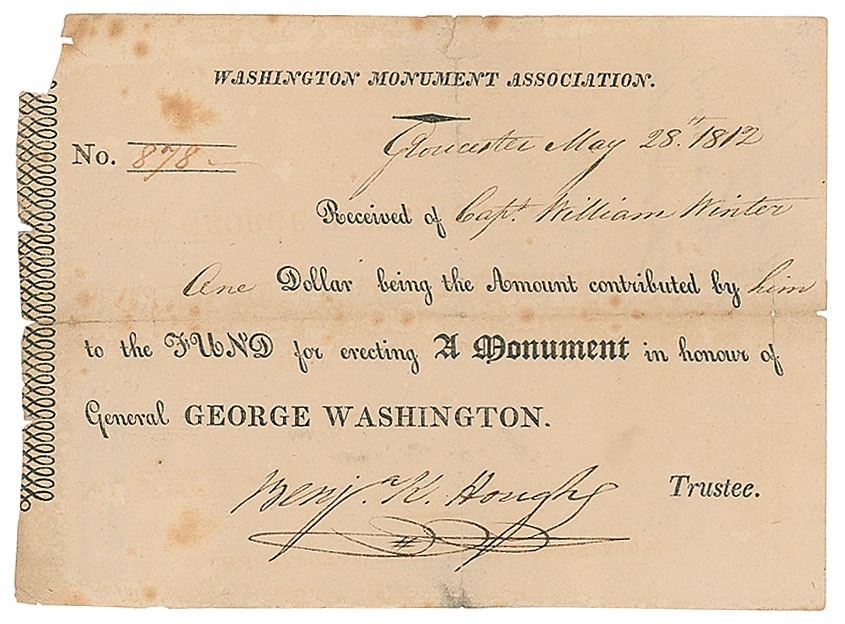 WASHINGTON MONUMENT ASSOCIATION.
Gloucester May 28.th 1812
No. 878
Received of Capt. William Winter
One Dollar being the Amount contributed by him
to the FUND for erecting A Monument in honour of
General GEORGE WASHINGTON.
Benj.a K. Hough Trustee.